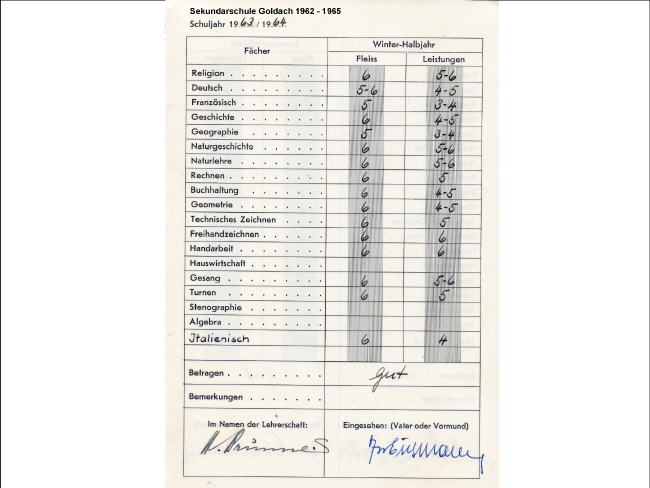 Sekundarschule Goldach 1962 - 1965
Schuljahr 1963 / 1964
Fächer Winter-Halbjahr
Fleiss Leistungen
Religion . . . . . . . . . 6 5-6
Deutsch . . . . . . . . . 5-6 4-5
Französisch . . . . . . . . 5 3-4
Geschichte . . . . . . . . 6 4-5
Geographie . . . . . . . . 5 3-4
Naturgeschichte . . . . . . 6 5-6
Naturlehre . . . . . . . . 6 5-6
Rechnen . . . . . . . . . 6 5
Buchhaltung . . . . . . . . 6 4-5
Geometrie . . . . . . . . 6 4-5
Technisches Zeichnen . . . . 6 5
Freihandzeichnen . . . . . . 6 6
Handarbeit . . . . . . . . 6 6
Hauswirtschaft . . . . . . .
Gesang . . . . . . . . . 6 5-6
Turnen . . . . . . . . . 6 5
Stenographie . . . . . . .
Algebra . . . . . . . . .
Italienisch 6 4
Betragen . . . . . . . . . gut
Bemerkungen . . . . . . .
Im Namen der Lehrerschaft: Eingesehen: (Vater oder Vormund)